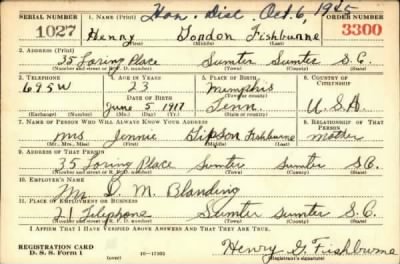 Hon. Disc. Oct. 6, 1945
SERIAL NUMBER 1. NAME (Print) ORDER NUMBER
1027 Henry Gordon Fishburne 3300
(First) (Middle) (Last)
2. ADDRESS (Print)
35 Loring Place Sumter Sumter S.C.
(Number and street or R. F. D. number) (Town) (County) (State)
3. TELEPHONE 4. AGE IN YEARS 5. PLACE OF BIRTH 6. COUNTRY OF CITIZENSHIP
695W 23 Memphis
DATE OF BIRTH (Town or county)
June 5 1917 Tenn. U.S.A.
(Exchange) (Number) (Mo.) (Day) (Yr.) (State or country)
7. NAME OF PERSON WHO WILL ALWAYS KNOW YOUR ADDRESS 8. RELATIONSHIP OF THAT PERSON
Mrs Jennie Gipson Fishburne Mother
(Mr., Mrs., Miss) (First) (Middle) (Last)
9. ADDRESS OF THAT PERSON
35 Loring Place Sumter Sumter S.C.
(Number and street or R. F. D. number) (Town) (County) (State)
10. EMPLOYER'S NAME
Mr. D. M. Blanding
11. PLACE OF EMPLOYMENT OR BUSINESS
21 Telephone Sumter Sumter S.C.
(Number and street or R. F. D. number) (Town) (County) (State)
I AFFIRM THAT I HAVE VERIFIED ABOVE ANSWERS AND THAT THEY ARE TRUE.
REGISTRATION CARD
D. S. S. Form 1 (over) Henry G. Fishburne
(Registrant's signature)